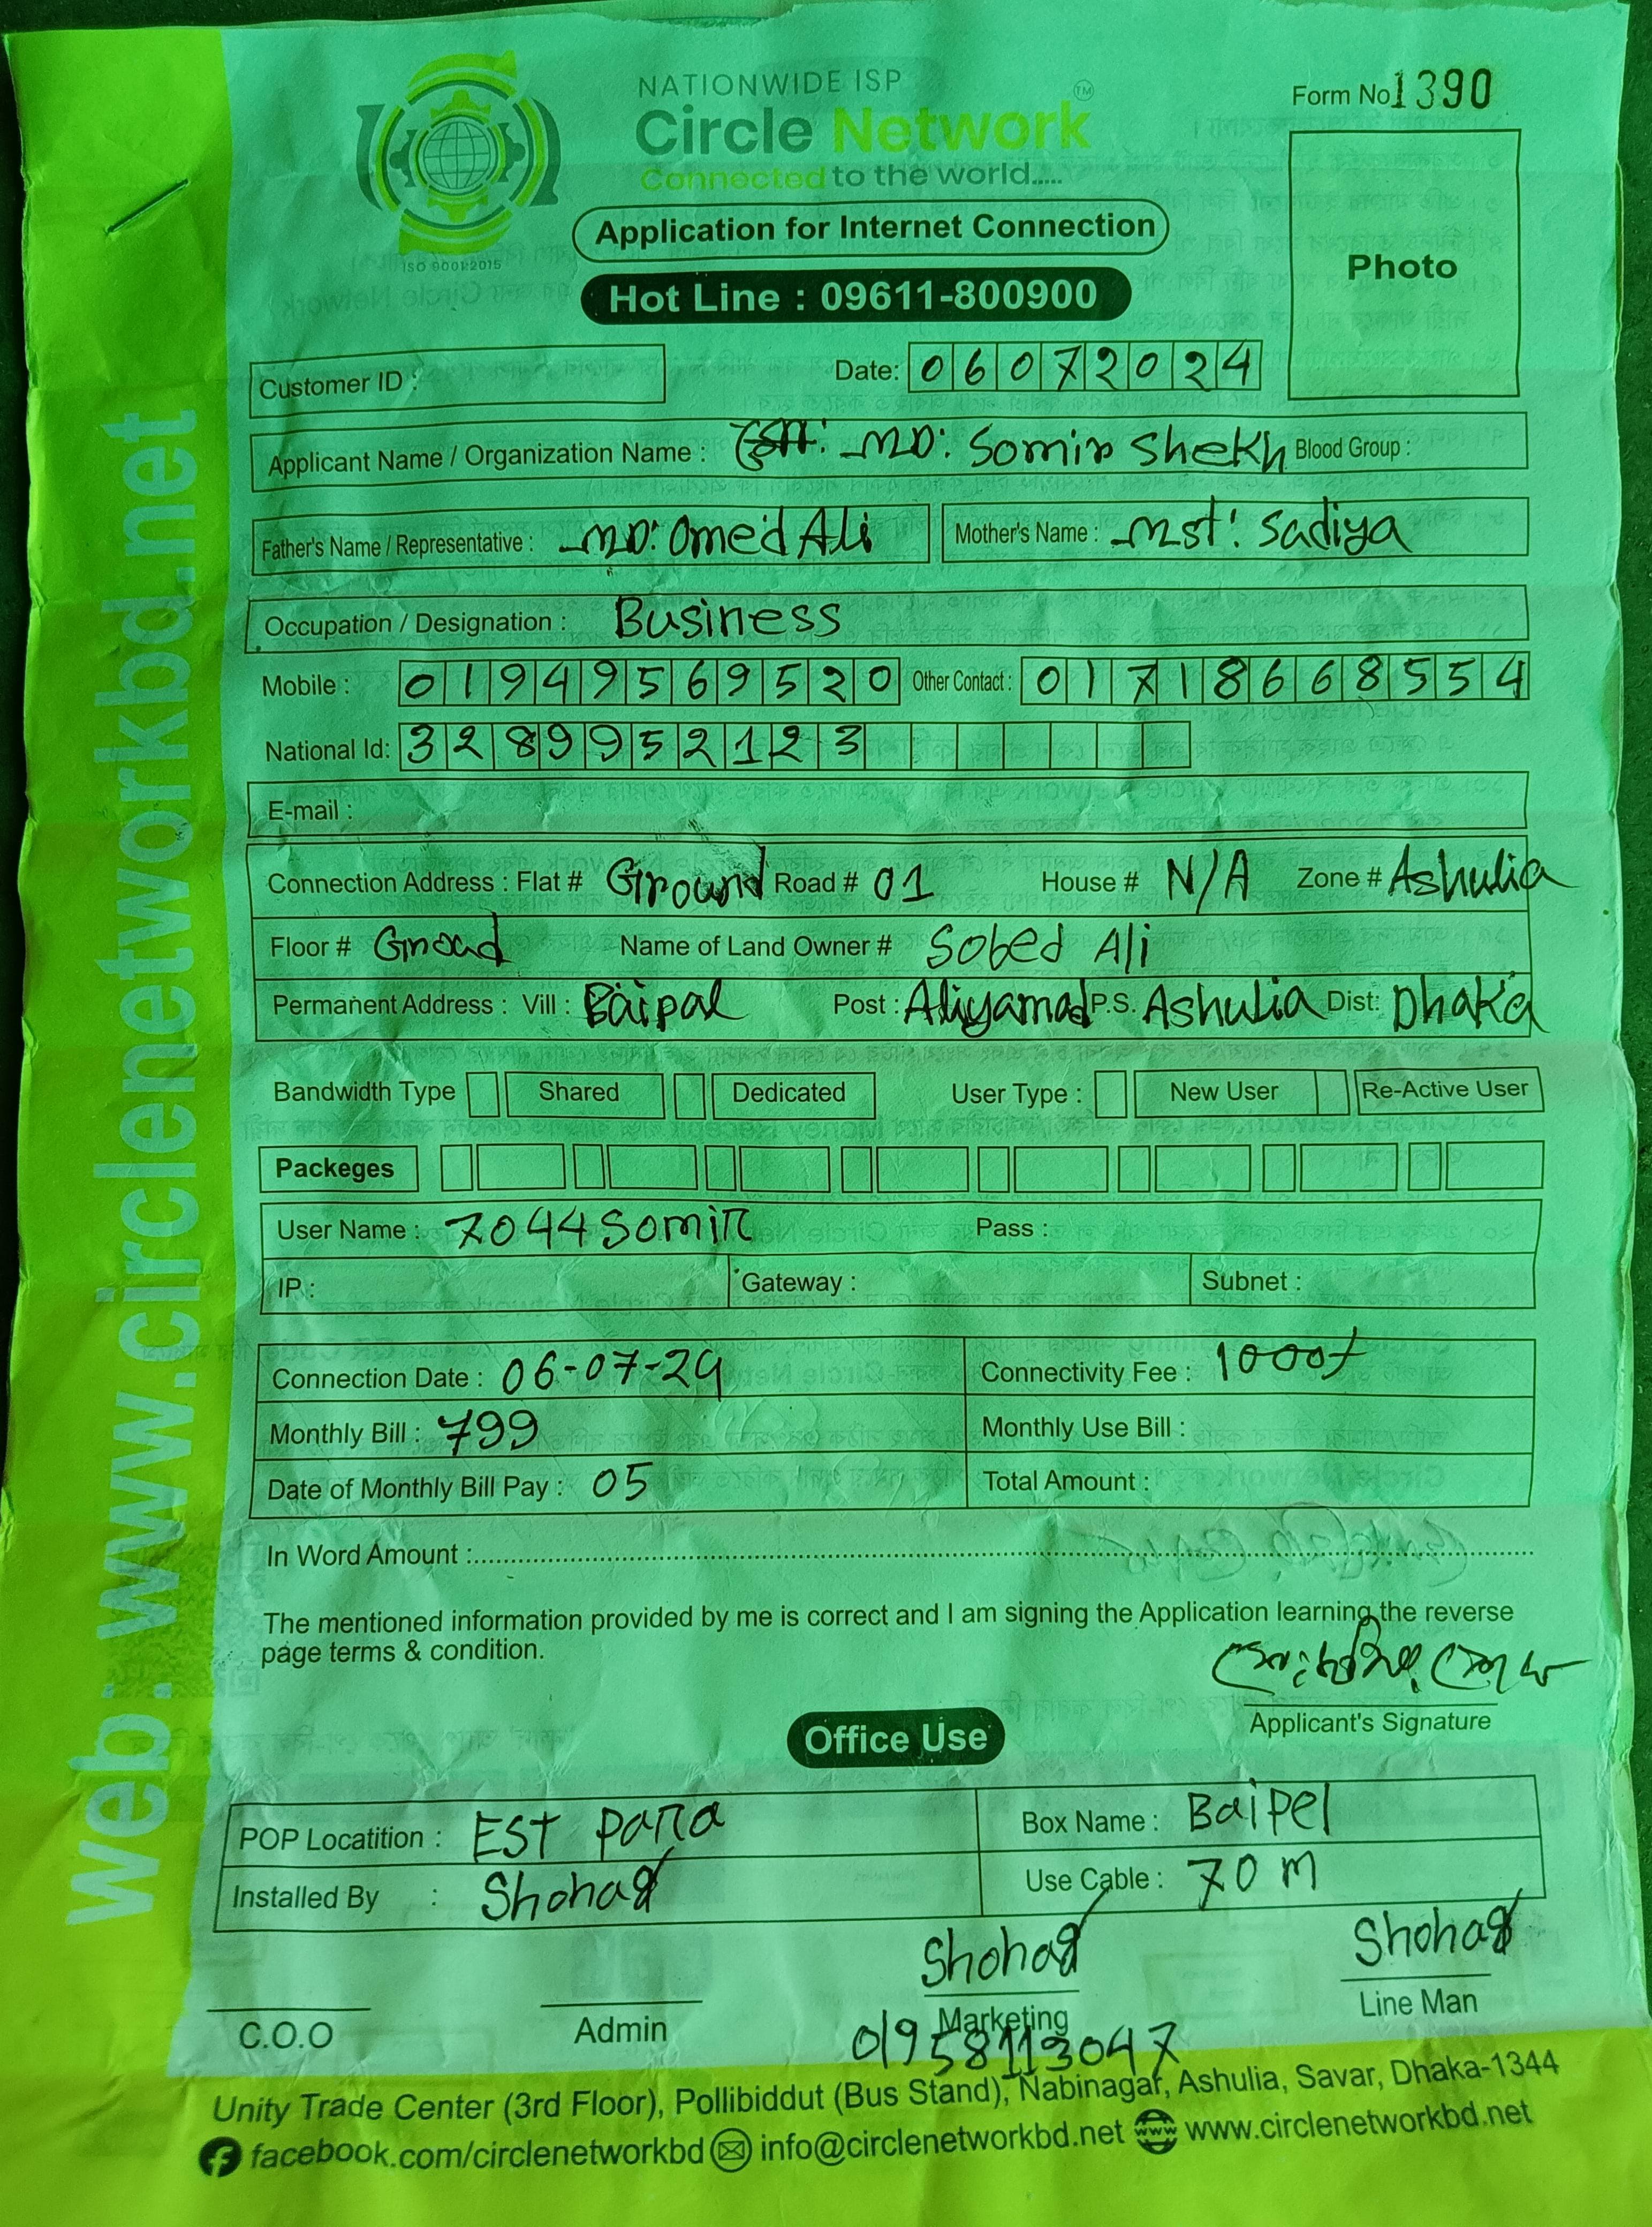 NATIONWIDE ISP
Circle Network™
Connected to the world.....
ISO 9001:2015
Form No 1390
Photo
Application for Internet Connection
Hot Line : 09611-800900
Customer ID :
Date: 06072024
Applicant Name / Organization Name : MD: Somir Shekh Blood Group :
Father's Name / Representative : MD: Omed Ali Mother's Name : Mst: Sadiya
Occupation / Designation : Business
Mobile : 01949569520 Other Contact : 01718668554
National Id: 3289952123
E-mail :
Connection Address : Flat # Ground Road # 01 House # N/A Zone # Ashulia
Floor # Groad Name of Land Owner # Sobed Ali
Permanent Address : Vill : Baipal Post : Aliyamad P.S. Ashulia Dist: Dhaka
Bandwidth Type Shared Dedicated User Type : New User Re-Active User
Packeges
User Name : 7044Somir Pass :
IP : Gateway : Subnet :
Connection Date : 06-07-24 Connectivity Fee : 1000/
Monthly Bill : 799 Monthly Use Bill :
Date of Monthly Bill Pay : 05 Total Amount :
In Word Amount :
The mentioned information provided by me is correct and I am signing the Application learning the reverse
page terms & condition.
Applicant's Signature
Office Use
POP Locatition : EST para Box Name : Baipel
Installed By : Shohag Use Cable : 70 m
Shohag Shohag
C.O.O Admin Marketing Line Man
01958113047
Unity Trade Center (3rd Floor), Pollibiddut (Bus Stand), Nabinagar, Ashulia, Savar, Dhaka-1344
facebook.com/circlenetworkbd info@circlenetworkbd.net www.circlenetworkbd.net
web: www.circlenetworkbd.net